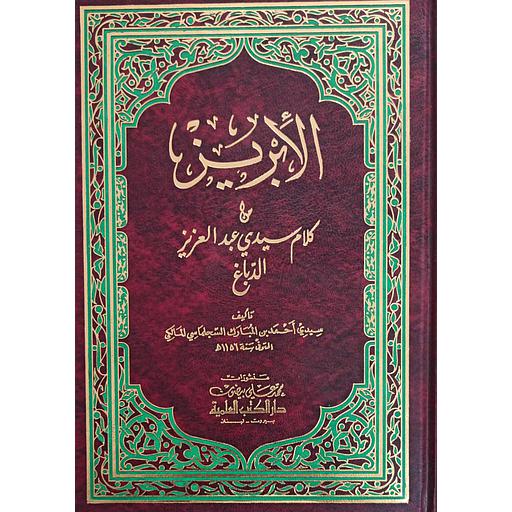 الأبريز
من
كلام سيدي عبد العزيز
الدباغ
تأليف
سيدي أحمد بن المبارك السجلماسي المالكي
المتوفى سنة ١١٥٦هـ
منشورات
محمد علي بيضون
دار الكتب العلمية
بيروت - لبنان